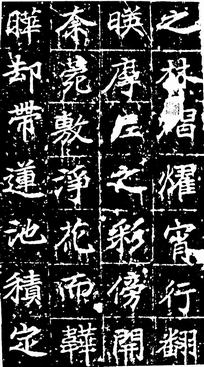 之林唱燿宵行翻
暎摩丘之彩傍開
柰菀敷淨花而韡
曄却帶蓮池積定